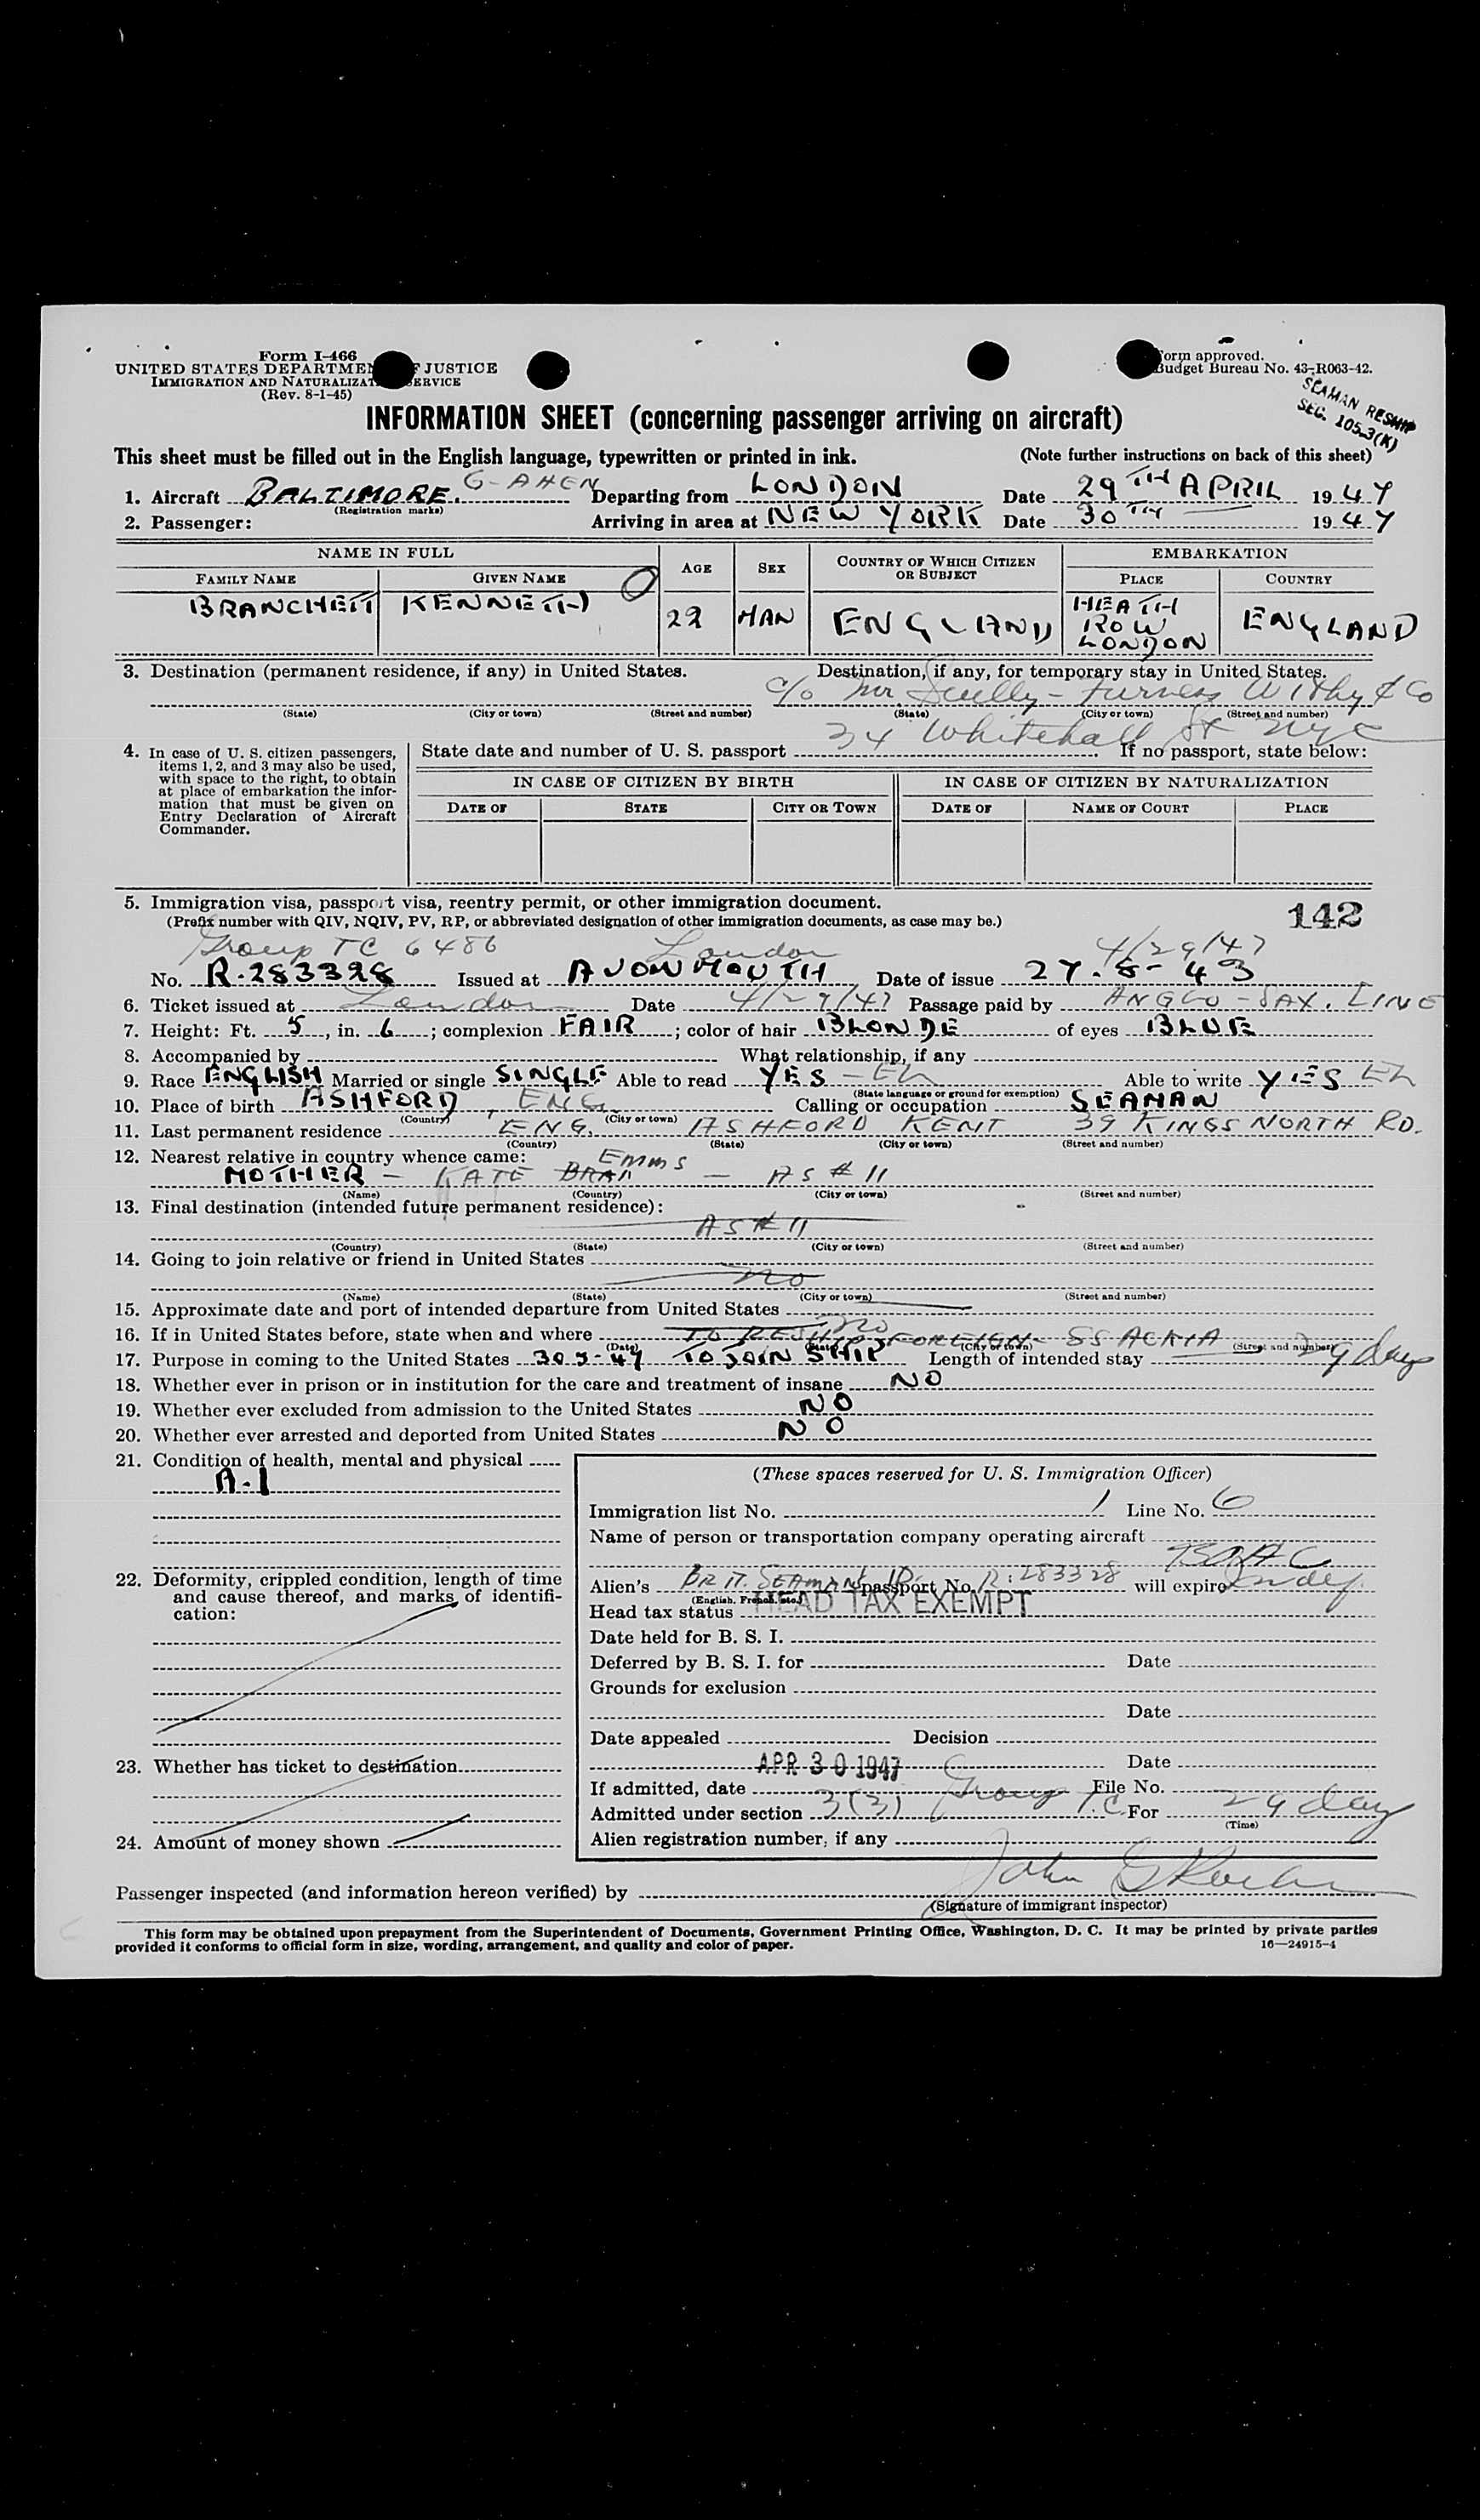 Form I-466
UNITED STATES DEPARTMENT OF JUSTICE
IMMIGRATION AND NATURALIZATION SERVICE
(Rev. 8-1-45)
Form approved.
Budget Bureau No. 43-R063-42.
SEAMAN RESHIP
SEC. 105.3(K)
INFORMATION SHEET (concerning passenger arriving on aircraft)
This sheet must be filled out in the English language, typewritten or printed in ink. (Note further instructions on back of this sheet)
1. Aircraft BALTIMORE. G-AHEN Departing from LONDON Date 29TH APRIL 1947
(Registration marks)
2. Passenger: Arriving in area at NEW YORK Date 30TH 1947
NAME IN FULL AGE SEX COUNTRY OF WHICH CITIZEN OR SUBJECT EMBARKATION
FAMILY NAME GIVEN NAME PLACE COUNTRY
BRANCHETT KENNETH 22 MAN ENGLAND HEATH ROW LONDON ENGLAND
3. Destination (permanent residence, if any) in United States. Destination, if any, for temporary stay in United States.
c/o Mr Scully - Furness Withy & Co
(State) (City or town) (Street and number) (State) (City or town) (Street and number)
34 Whitehall St NYC
4. In case of U. S. citizen passengers, items 1, 2, and 3 may also be used, with space to the right, to obtain at place of embarkation the information that must be given on Entry Declaration of Aircraft Commander.
State date and number of U. S. passport If no passport, state below:
IN CASE OF CITIZEN BY BIRTH IN CASE OF CITIZEN BY NATURALIZATION
DATE OF STATE CITY OR TOWN DATE OF NAME OF COURT PLACE
5. Immigration visa, passport visa, reentry permit, or other immigration document.
(Prefix number with QIV, NQIV, PV, RP, or abbreviated designation of other immigration documents, as case may be.)
142
Group TC 6486 London 4/29/47
No. R.283328 Issued at AVONMOUTH Date of issue 27.8-43
6. Ticket issued at London Date 4/29/47 Passage paid by ANGLO-SAX. LINE
7. Height: Ft. 5, in. 6; complexion FAIR; color of hair BLONDE of eyes BLUE
8. Accompanied by What relationship, if any
9. Race ENGLISH Married or single SINGLE Able to read YES - Eh Able to write YES Eh
(State language or ground for exemption)
10. Place of birth ASHFORD, ENG. Calling or occupation SEAMAN
(Country) (City or town)
11. Last permanent residence ENG. ASHFORD KENT 39 KINGS NORTH RD.
(Country) (State) (City or town) (Street and number)
12. Nearest relative in country whence came:
MOTHER - KATE BRAN EMMS - AS # 11
(Name) (Country) (City or town) (Street and number)
13. Final destination (intended future permanent residence):
AS # 11
(Country) (State) (City or town) (Street and number)
14. Going to join relative or friend in United States
no
(Name) (State) (City or town) (Street and number)
15. Approximate date and port of intended departure from United States
16. If in United States before, state when and where no
TO RESHIP FOREIGN - SS ACKIA
(Date) (State) (City or town) (Street and number)
17. Purpose in coming to the United States 30.5-47 TO JOIN SHIP Length of intended stay 29 days
18. Whether ever in prison or in institution for the care and treatment of insane NO
19. Whether ever excluded from admission to the United States NO
20. Whether ever arrested and deported from United States NO
21. Condition of health, mental and physical
A.1
22. Deformity, crippled condition, length of time and cause thereof, and marks of identification:
23. Whether has ticket to destination
24. Amount of money shown
(These spaces reserved for U. S. Immigration Officer)
Immigration list No. 1 Line No. 6
Name of person or transportation company operating aircraft
BOAC
Alien's BRIT. SEAMAN ID passport No. R:283328 will expire Indef.
(English, French, etc.)
Head tax status HEAD TAX EXEMPT
Date held for B. S. I.
Deferred by B. S. I. for Date
Grounds for exclusion
Date
Date appealed Decision
APR 30 1947 Date
If admitted, date File No.
Admitted under section 3(3) Group T.C. For 29 day
(Time)
Alien registration number, if any
Passenger inspected (and information hereon verified) by John G
(Signature of immigrant inspector)
This form may be obtained upon prepayment from the Superintendent of Documents, Government Printing Office, Washington, D. C. It may be printed by private parties
provided it conforms to official form in size, wording, arrangement, and quality and color of paper. 16—24915-4